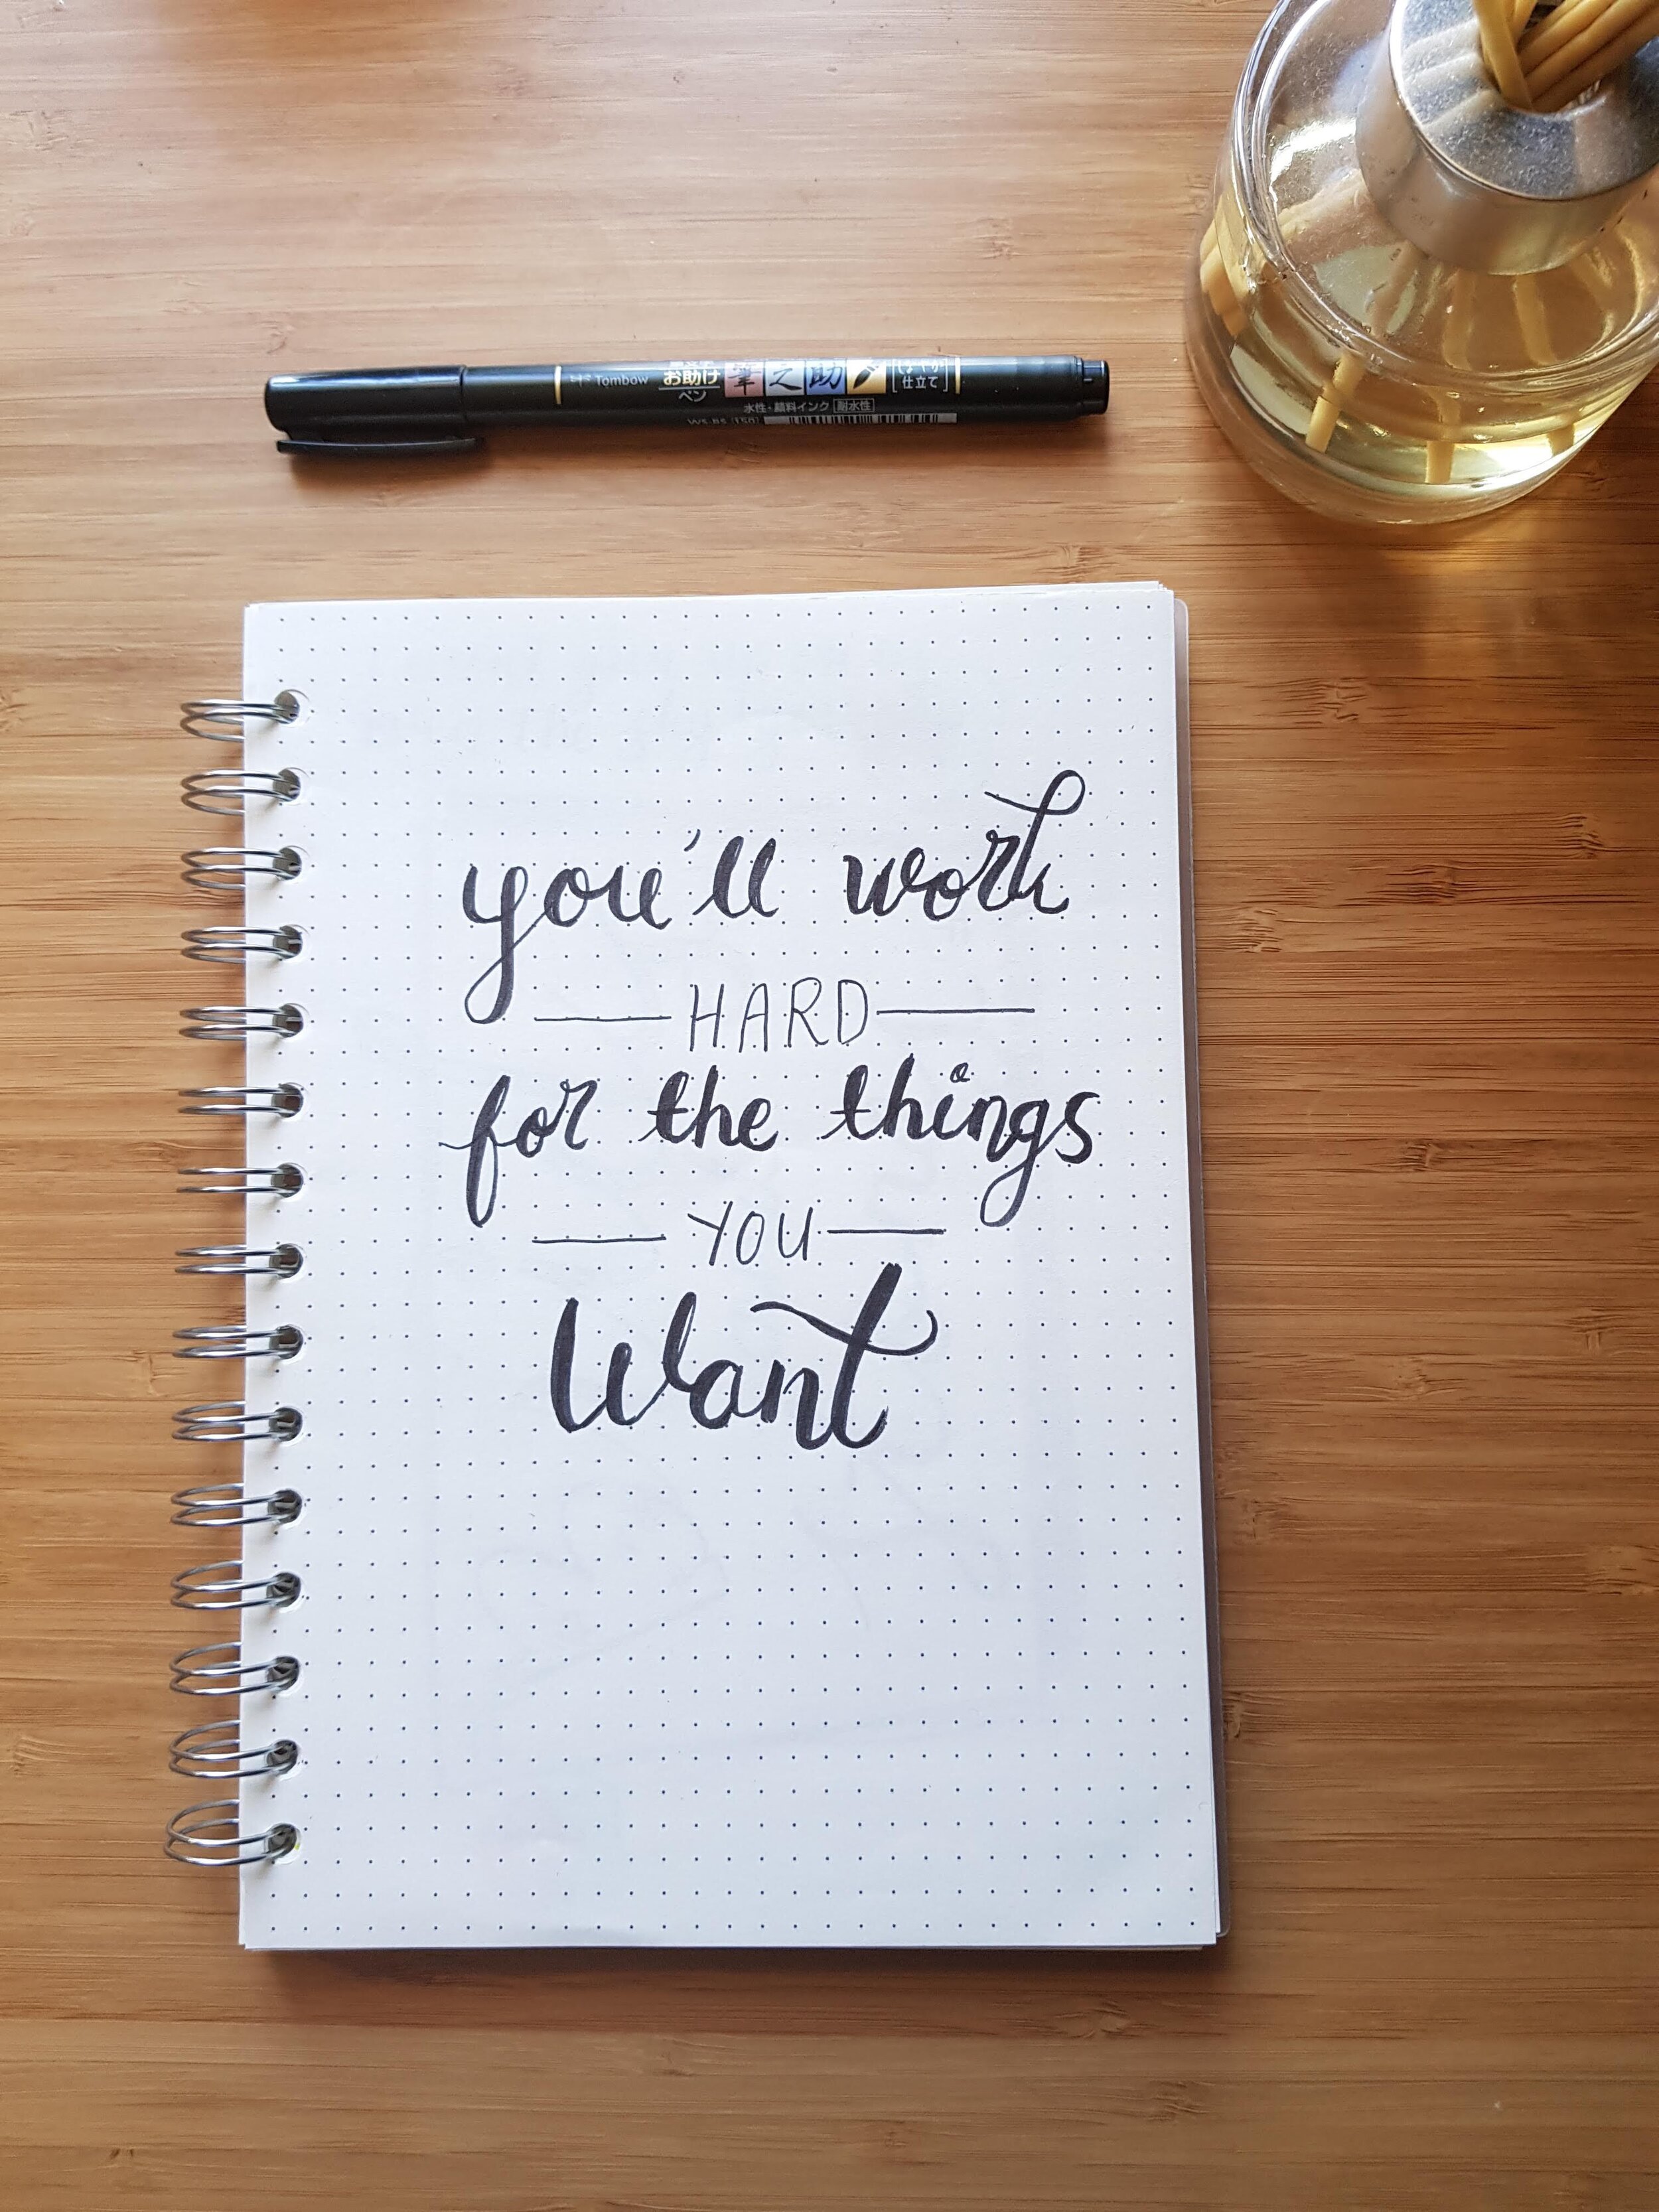 Tombow
お助け
ペン
筆之助
しっかり
仕立て
水性・顔料インク 耐水性
WS-BS (150)
you'll work
HARD
for the things
YOU
Want